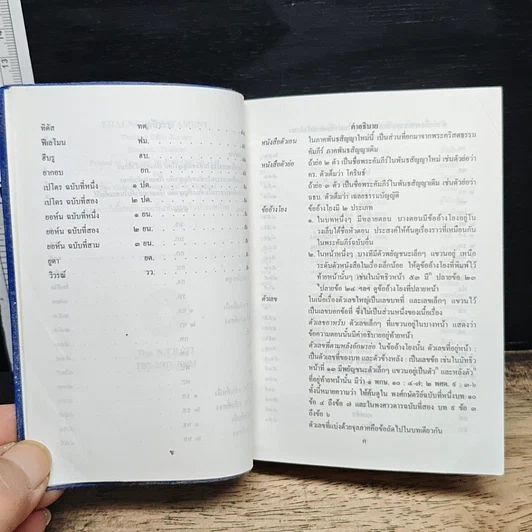 ทิตัส ทต.
ฟีเลโมน ฟม.
ฮีบรู ฮบ.
ยากอบ ยก.
เปโตร ฉบับที่หนึ่ง ๑ ปต.
เปโตร ฉบับที่สอง ๒ ปต.
ยอห์น ฉบับที่หนึ่ง ๑ ยน.
ยอห์น ฉบับที่สอง ๒ ยน.
ยอห์น ฉบับที่สาม ๓ ยน.
ยูดา ยด.
วิวรณ์ วว.
ข
คำอธิบาย
หนังสือตัวเอน ในภาคพันธสัญญาใหม่นี้ เป็นส่วนที่ยกมาจากพระคริสตธรรม
คัมภีร์ ภาคพันธสัญญาเดิม
หนังสือตัวย่อ ถ้าย่อ ๑ ตัว เป็นชื่อพระคัมภีร์ในพันธสัญญาใหม่ เช่นตัวย่อว่า
คร. ตัวเต็มว่า โครินธ์
ถ้าย่อ ๓ ตัว เป็นชื่อพระคัมภีร์ในพันธสัญญาเดิม เช่นตัวย่อว่า
ฉธบ. ตัวเต็มว่า เฉลยธรรมบัญญัติ
ข้ออ้างโยง ข้ออ้างโยงมี ๒ ประเภท
๑ ในบทหนึ่งๆ มีหลายตอน บางตอนมีข้ออ้างโยงอยู่ใน
วงเล็บใต้ชื่อหัวตอน ประสงค์ให้ค้นดูเรื่องราวที่เหมือนกัน
ในพระคัมภีร์ฉบับอื่น
๒ ในหน้าหนึ่งๆ บางทีมีตัวพยัญชนะเล็กๆ แขวนอยู่ เหนือ
ระดับตัวหนังสือในเรื่องเล็กน้อย ให้ดูข้ออ้างโยงที่พิมพ์ไว้
ท้ายหน้านั้นๆ เช่นในมัทธิว หน้า ๕๓ มี ปลายข้อ ๒๓
ปลายข้อ ๒๔ ฯลฯ ดูข้ออ้างโยงที่ปลายหน้า
ตัวเลข ในเนื้อเรื่องตัวเลขใหญ่เป็นเลขบทที่ และเลขเล็กๆ แขวนไว้
เป็นเลขบอกข้อที่ ซึ่งไม่เป็นส่วนหนึ่งของเนื้อเรื่อง
ตัวเลขอาหรับ ตัวเลขเล็กๆ ที่แขวนอยู่ในบางหน้า แสดงว่า
ข้อความตอนนั้นมีคำอธิบายอยู่ท้ายหน้า
ตัวเลขที่ตามหลังอักษรย่อ ในข้ออ้างโยงนั้น ตัวเลขที่อยู่หน้า :
เป็นตัวเลขของบท และตัวข้างหลัง : เป็นเลขข้อ เช่นในมัทธิว
ที่อยู่ท้ายหน้านั้น มีว่า ๑ พกษ. ๑๐ : ๔-๗; ๒ พศด. ๙ : ๓-๖
ทั้งนี้หมายความว่า ให้ค้นดูใน พงศ์กษัตริย์ฉบับที่หนึ่งบท ๑๐
ข้อ ๔ ถึงข้อ ๗ และในพงศาวดารฉบับที่สอง บท ๙ ข้อ ๓
ถึงข้อ ๖
ตัวเลขที่แบ่งด้วยจุลภาคคือข้อถัดไปในบทเดียวกัน
ค